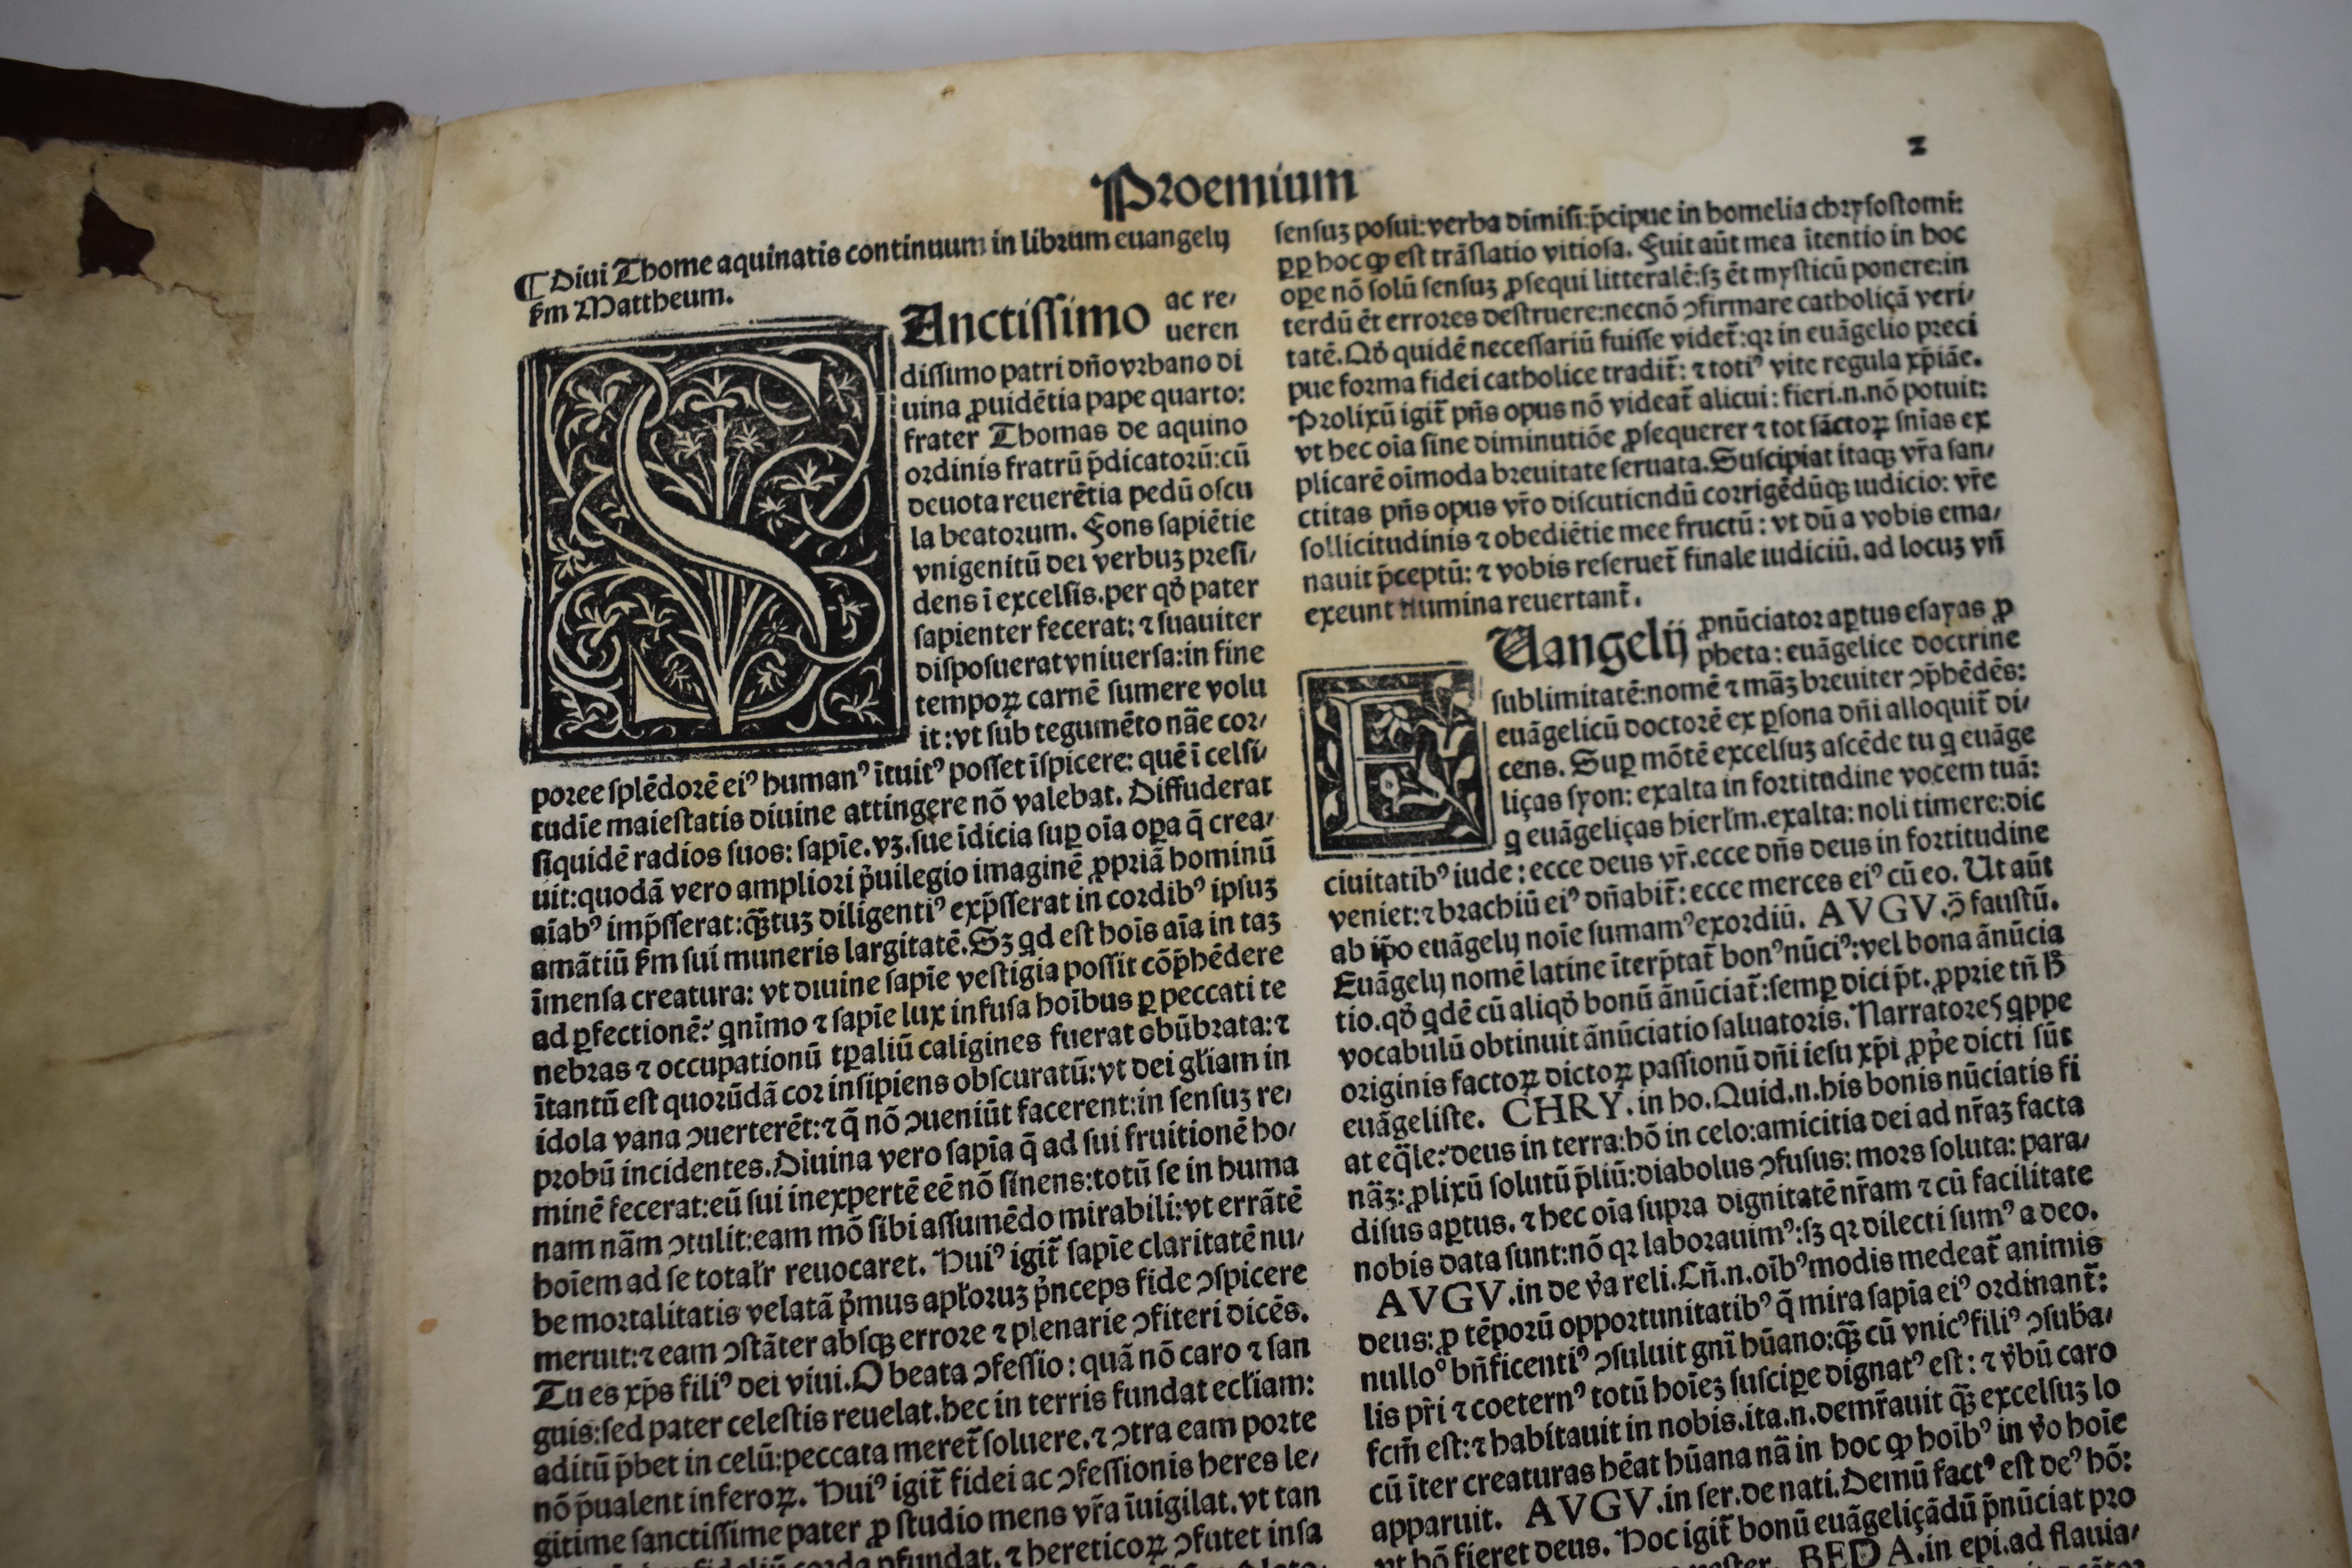 Proemium
2
¶ Diui Thome aquinatis continuum in librum euangelij
ẜm Mattheum.
SAnctissimo ac re-
ueren
dissimo patri dño vrbano di
uina ꝓuidētia pape quarto:
frater̃ Thomas de aquino
ordinis fratrū p̄dicatorū:cū
deuota reuerētia pedū oscu
la beatorum. Fons sapiētie
vnigenitū dei verbuꝫ presi-
dens ī excelsis.per qḋ pater
sapienter fecerat: ⁊ suauiter
disposuerat vniuersa:in fine
tempoꝝ carnē sumere volu
it:vt sub tegumēto nāe cor-
poree splēdorē eiꝰ humanꝰ ītuitꝰ posset īspicere: quē ī celsi-
tudīe maiestatis diuine attingere nō valebat. Diffuderat
siquidē radios suos: sapīe.vꝫ.sue īdicia suꝑ oīa oꝑa q̄ crea-
uit:quodā vero ampliori p̄uilegio imaginē ꝓpriā hominū
aīabꝰ imp̄sserat:q̄ꝫtuꝫ diligentiꝰ exp̄sserat in cordibꝰ ipsuꝫ
amātiū ẜm sui muneris largitatē.Sꝫ qd est hoīs aīa in taꝫ
īmensa creatura: vt diuine sapīe vestigia possit cōp̄hēdere
ad ꝑfectionē: qnīmo ⁊ sapīe lux infusa hoībus ꝑ peccati te
nebras ⁊ occupationū tꝑaliū caligines fuerat obūbrata:⁊
ītantū est quorūdā cor insipiens obscuratū:vt dei gl̄iam in
idola vana ↄuerterēt:⁊ q̄ nō ↄueniūt facerent:in sensuꝫ re-
probū incidentes.Diuina vero sapīa q̄ ad sui fruitionē ho-
minē fecerat:eū sui inexpertē eē nō sinens:totū se in huma
nam nām ↄtulit:eam mō sibi assumēdo mirabili:vt errātē
hoīem ad se total̄r reuocaret. Huiꝰ igit̃ sapīe claritatē nu-
be mortalitatis velatā p̄mus apl̄oruꝫ p̄nceps fide ↄspicere
meruit:⁊ eam ↄstāter absqꝫ errore ⁊ plenarie ↄfiteri dicēs.
Tu es xp̄s filiꝰ dei viui.O beata ↄfessio: quā nō caro ⁊ san
guis:sed pater celestis reuelat.hec in terris fundat eccl̄iam:
aditū p̄bet in celū:peccata meret̃ soluere.⁊ ↄtra eam porte
nō p̄ualent inferoꝝ. Huiꝰ igit̃ fidei ac ↄfessionis heres le-
gitime sanctissime pater ꝓ studio mens vr̄a īuigilat.vt tan
⁊ hereticoꝝ ↄfutet insa
sensuꝫ posui:verba dimisi:p̄cipue in homelia chrysostomi:
ꝓꝑ hoc ꝙ est trāslatio vitiosa. Fuit aūt mea ītentio in hoc
oꝑe nō solū sensuꝫ ꝓsequi litteralē:sꝫ ēt mysticū ponere:in
terdū ēt errores destruere:necnō ↄfirmare catholiçā veri-
tatē.Qḋ quidē necessariū fuisse videt̃:qꝛ in euāgelio preci
pue forma fidei catholice tradit̃: ⁊ totiꝰ vite regula xp̄iāe.
Prolixū igit̃ pn̄s opus nō videat̃ alicui: fieri.n.nō potuit:
vt hec oīa sine diminutiōe ꝓsequerer ⁊ tot sāctoꝝ snīas ex
plicarē oīmoda breuitate seruata.Suscipiat itaqꝫ vr̄a san-
ctitas pn̄s opus vr̄o discutiendū corrigēdūqꝫ iudicio: vr̄e
sollicitudinis ⁊ obediētie mee fructū: vt dū a vobis ema-
nauit p̄ceptū: ⁊ vobis reseruet̃ finale iudiciū. ad locuꝫ vn̄
exeunt flumina reuertant̃.
EUangelij ꝓnūciator aꝑtus esayas ꝓ
pheta: euāgelice doctrine
sublimitatē:nomē ⁊ māꝫ breuiter ↄp̄hēdēs:
euāgelicū doctorē ex ꝑsona dñi alloquit̃ di-
cens. Suꝑ mōtē excelsuꝫ ascēde tu q euāge
liças syon: exalta in fortitudine vocem tuā:
q euāgeliças hierl̄m.exalta: noli timere:dic
ciuitatibꝰ iude: ecce deus vr̄.ecce dñs deus in fortitudine
veniet:⁊ brachiū eiꝰ dñabit̃: ecce merces eiꝰ cū eo. Ut aūt
ab ip̄o euāgelij noīe sumamꝰ exordiū. AVGV.ↄ̄ faustū.
Euāgelij nomē latine īterp̄tat̃ bonꝰ nūciꝰ:vel bona ānūcia
tio.qḋ qdē cū aliqḋ bonū ānūciat̃:semꝑ dici p̄t. ꝓprie tn̄ ħ
vocabulū obtinuit ānūciatio saluatoris. Narratores qppe
originis factoꝝ dictoꝝ passionū dñi iesu xp̄i ꝓp̄e dicti sūt
euāgeliste. CHRY. in ho.Quid.n.his bonis nūciatis fi
at eq̄le:deus in terra:hō in celo:amicitia dei ad nr̄aꝫ facta
nāꝫ: ꝓlixū solutū p̄liū:diabolus ↄfusus: mors soluta: para-
disus aꝑtus. ⁊ hec oīa supra dignitatē nr̄am ⁊ cū facilitate
nobis data sunt:nō qꝛ laborauimꝰ:sꝫ qꝛ dilecti sumꝰ a deo.
AVGV.in de v̄a reli.Cū.n.oībꝰ modis medeat̃ animis
deus: ꝓ tēporū opportunitatibꝰ q̄ mira sapīa eiꝰ ordinant̃:
nullo° bn̄ficentiꝰ ↄsuluit gnī hūano:q̄ꝫ cū vnicꝰ filiꝰ ↄsuba-
lis pr̄i ⁊ coeternꝰ totū hoīeꝫ suscipe dignatꝰ est: ⁊ v̄bū caro
fcm̄ est:⁊ habitauit in nobis.ita.n.demr̄auit q̄ꝫ excelsuꝫ lo
cū īter creaturas hēat hūana nā in hoc ꝙ hoībꝰ in v̄o hoīe
apparuit. AVGV.in ser.de nati.Demū factꝰ est deꝰ hō:
vt hō fieret deus. Hoc igit̃ bonū euāgeliçādū p̄nūciat pro
BEDA.in epi.ad flauia-